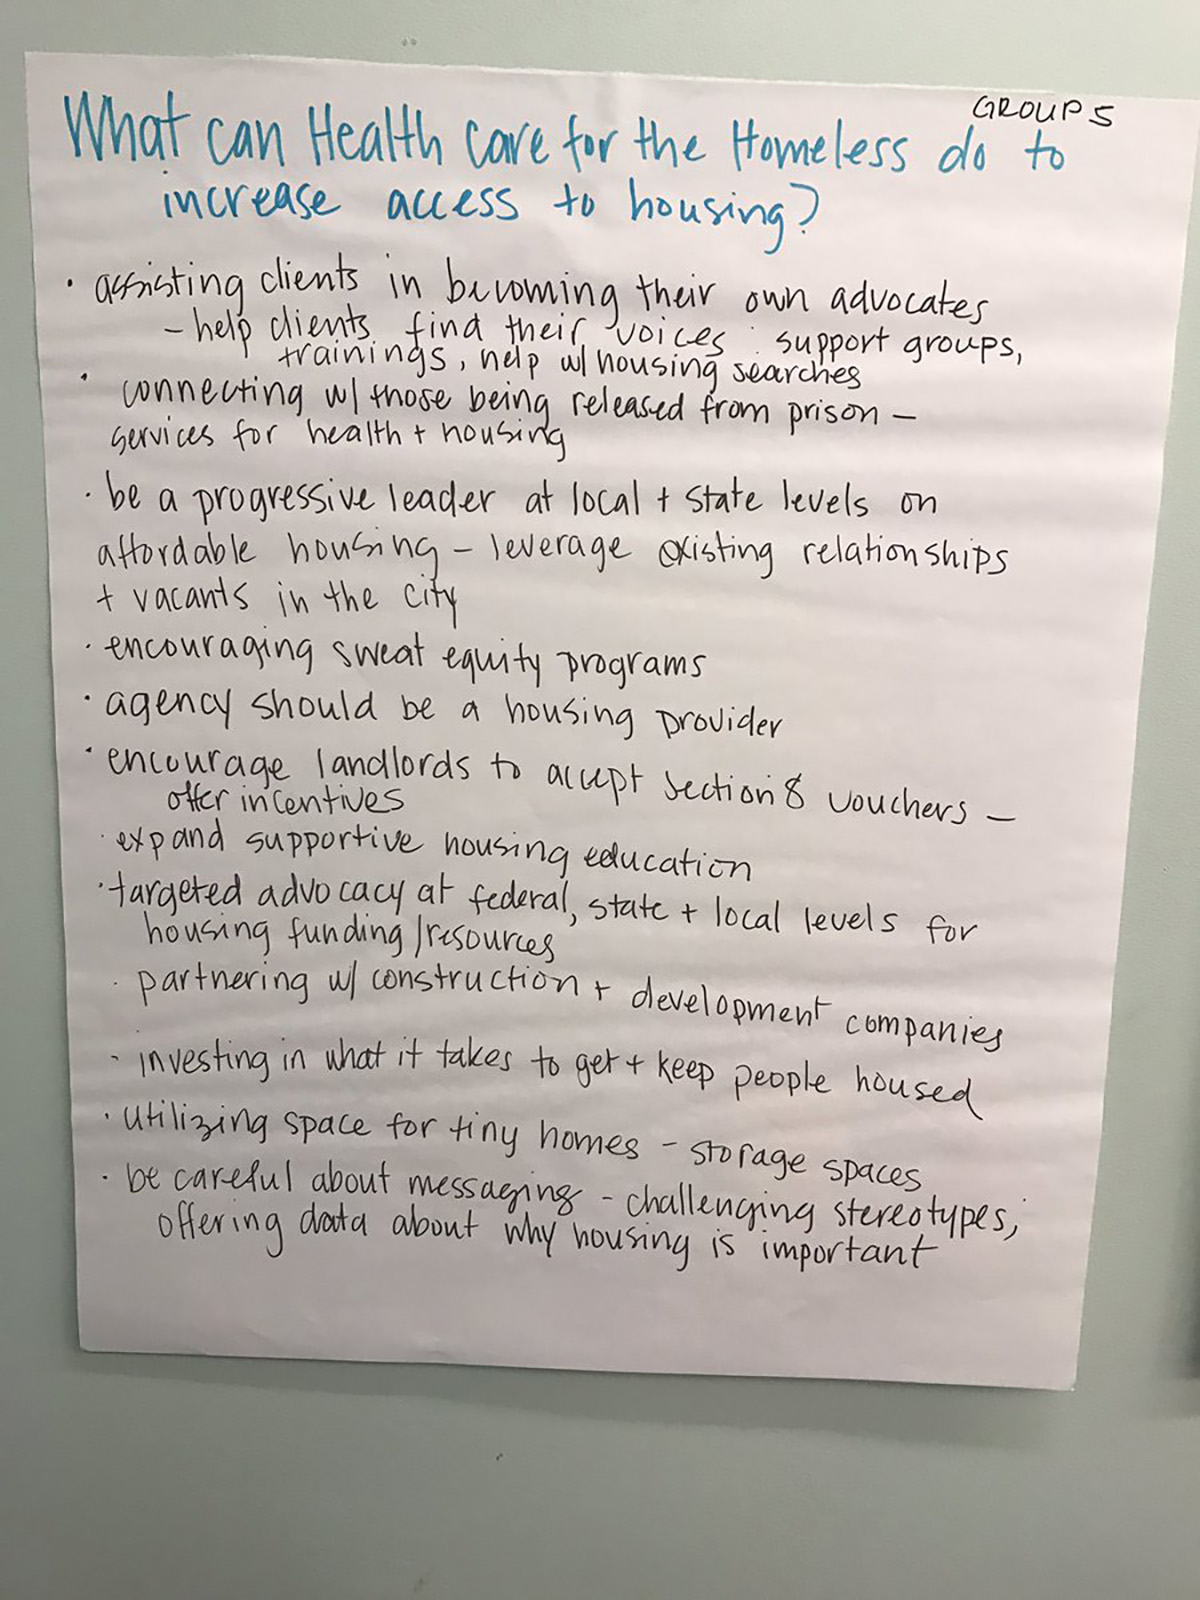 GROUP 5
What can Health Care for the Homeless do to
increase access to housing?
· assisting clients in becoming their own advocates
- help clients find their voices : support groups,
trainings, help w/ housing searches
· connecting w/ those being released from prison -
services for health + housing
· be a progressive leader at local + state levels on
affordable housing - leverage existing relationships
+ vacants in the city
· encouraging sweat equity programs
· agency should be a housing provider
· encourage landlords to accept Section 8 vouchers -
offer incentives
· expand supportive housing education
· targeted advocacy at federal, state + local levels for
housing funding/resources
· partnering w/ construction + development companies
· investing in what it takes to get + keep people housed
· utilizing space for tiny homes - storage spaces
· be careful about messaging - challenging stereotypes,
offering data about why housing is important